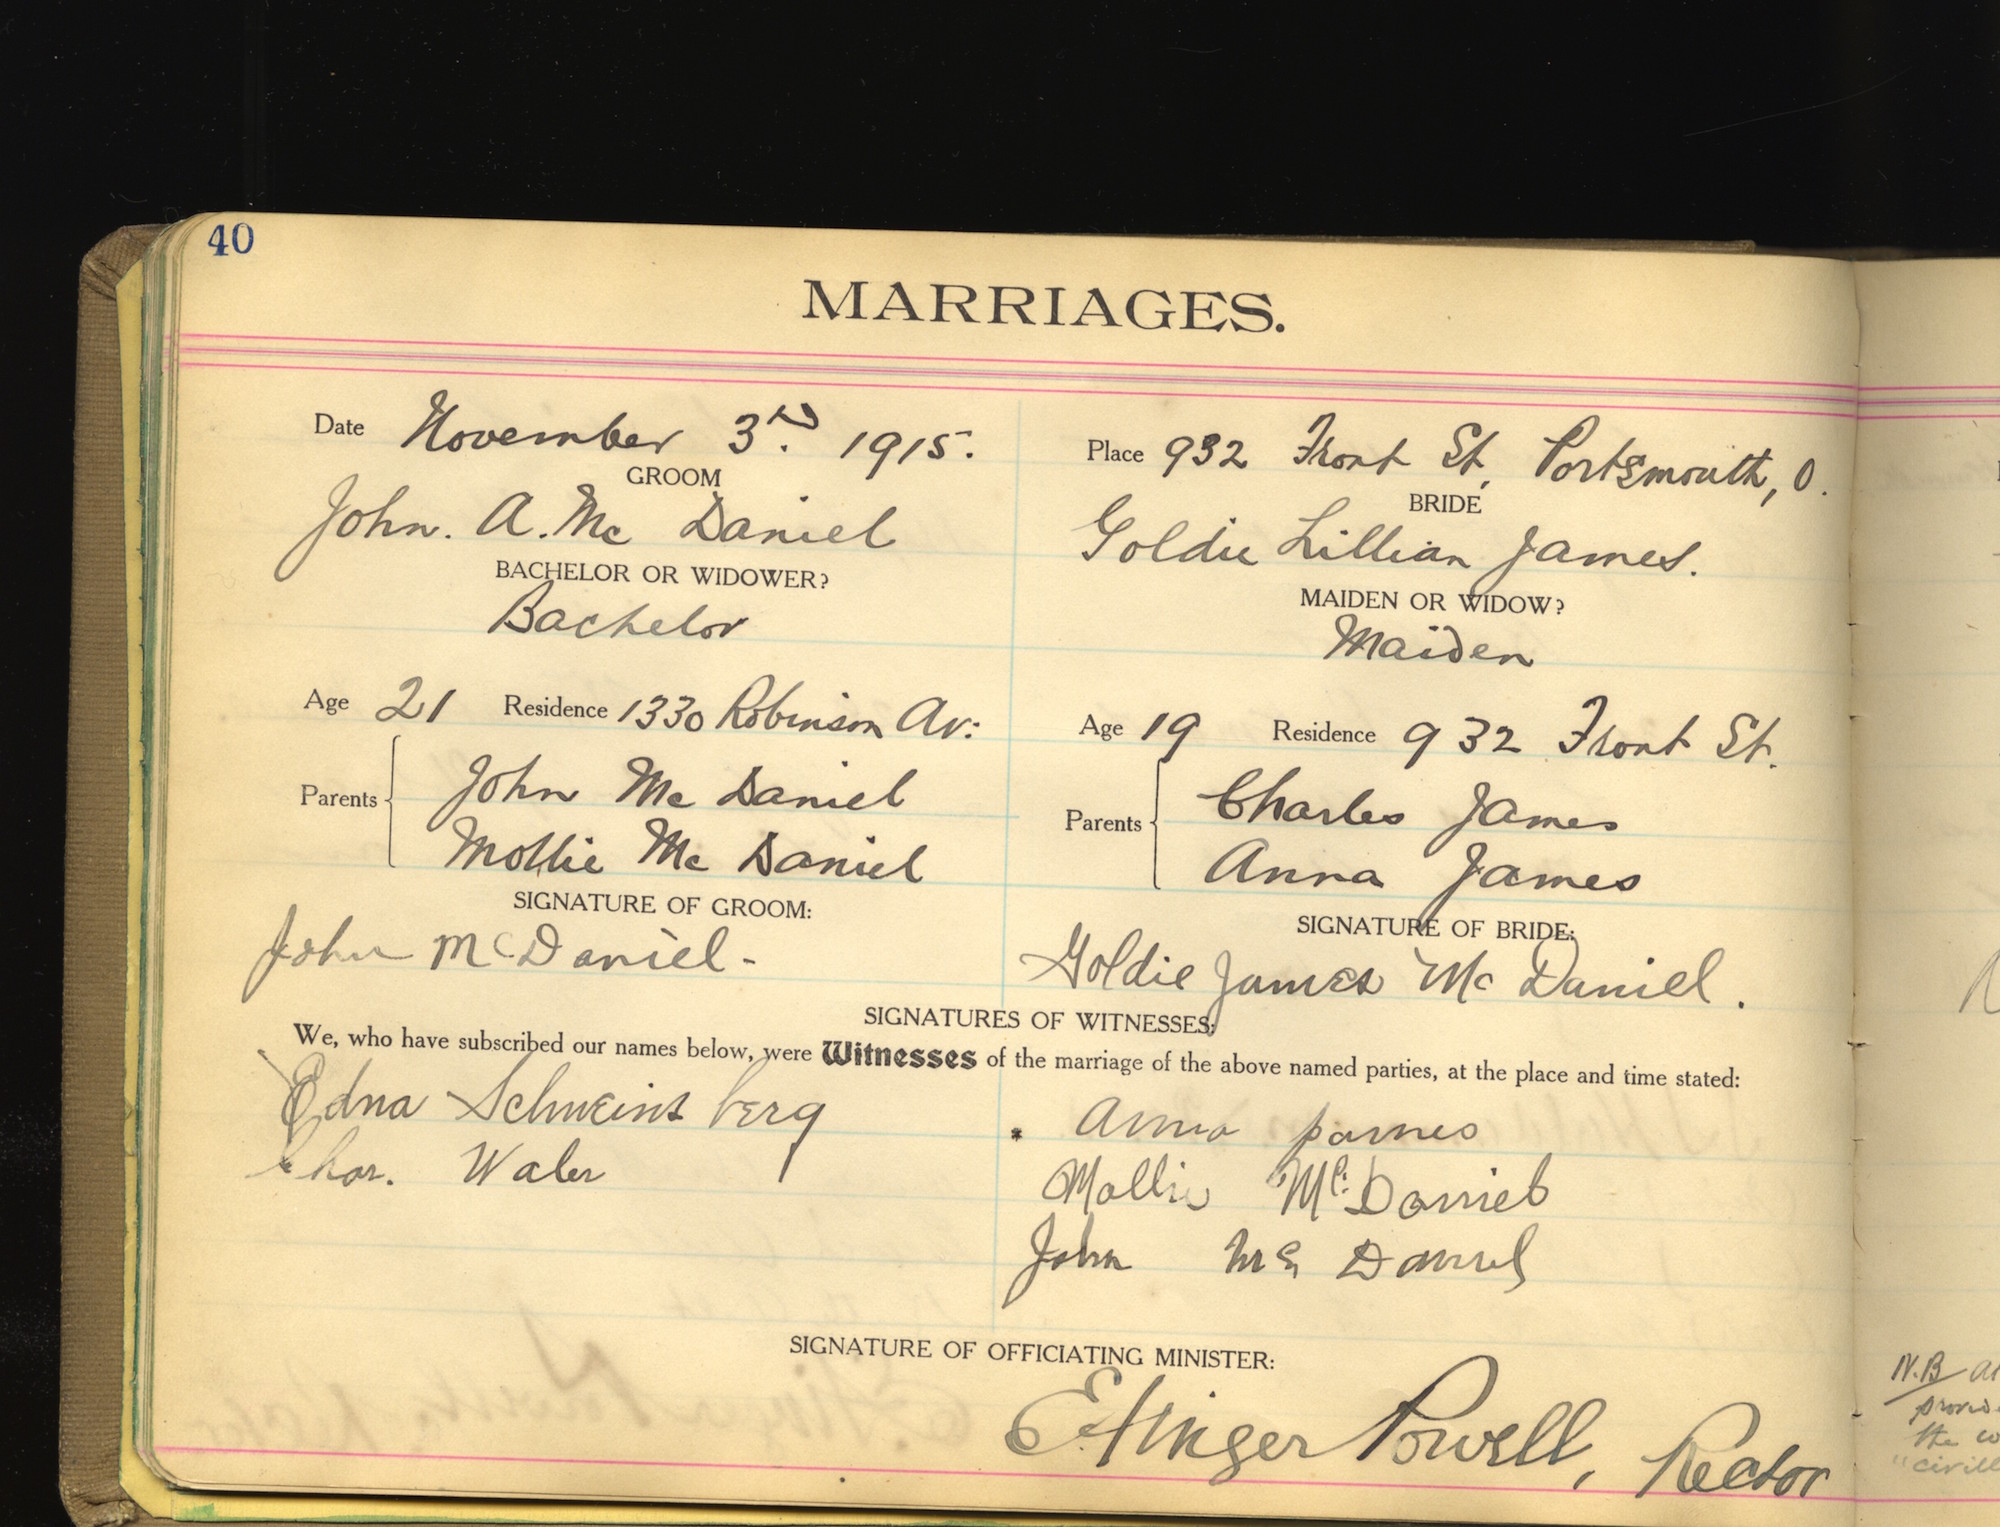 40
MARRIAGES.
Date November 3rd. 1915.
Place 932 Front St, Portsmouth, O.
GROOM
John. A. Mc Daniel
BRIDE
Goldie Lillian James.
BACHELOR OR WIDOWER?
Bachelor
MAIDEN OR WIDOW?
Maiden
Age 21 Residence 1330 Robinson Av:
Age 19 Residence 932 Front St.
Parents
John Mc Daniel
Mollie Mc Daniel
Parents
Charles James
Anna James
SIGNATURE OF GROOM:
John McDaniel-
SIGNATURE OF BRIDE:
Goldie James Mc Daniel.
SIGNATURES OF WITNESSES:
We, who have subscribed our names below, were Witnesses of the marriage of the above named parties, at the place and time stated:
Edna Schweinsberg
Chas.
Anna James
Mollie Mc Daniel
John Mc Daniel
SIGNATURE OF OFFICIATING MINISTER:
E Ainger Powell, Rector
N.B
the
"civill